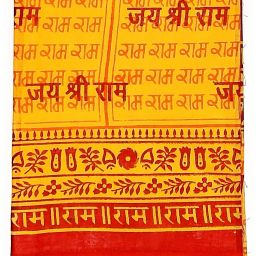 राम जय श्री राम
राम राम राम राम
राम राम राम राम
राम राम राम राम
जय श्री राम जय
राम राम राम राम
राम॥राम॥राम॥राम॥राम